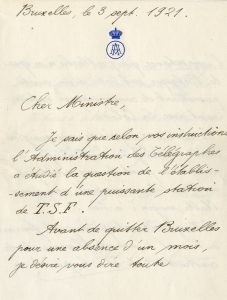 Bruxelles, le 3 sept. 1921.
Cher Ministre,
Je sais que selon vos instructions
l'Administration des Télégraphes
a étudié la question de l'établis-
sement d'une puissante station
de T.S.F.
Avant de quitter Bruxelles
pour une absence d'un mois,
je désire vous dire toute